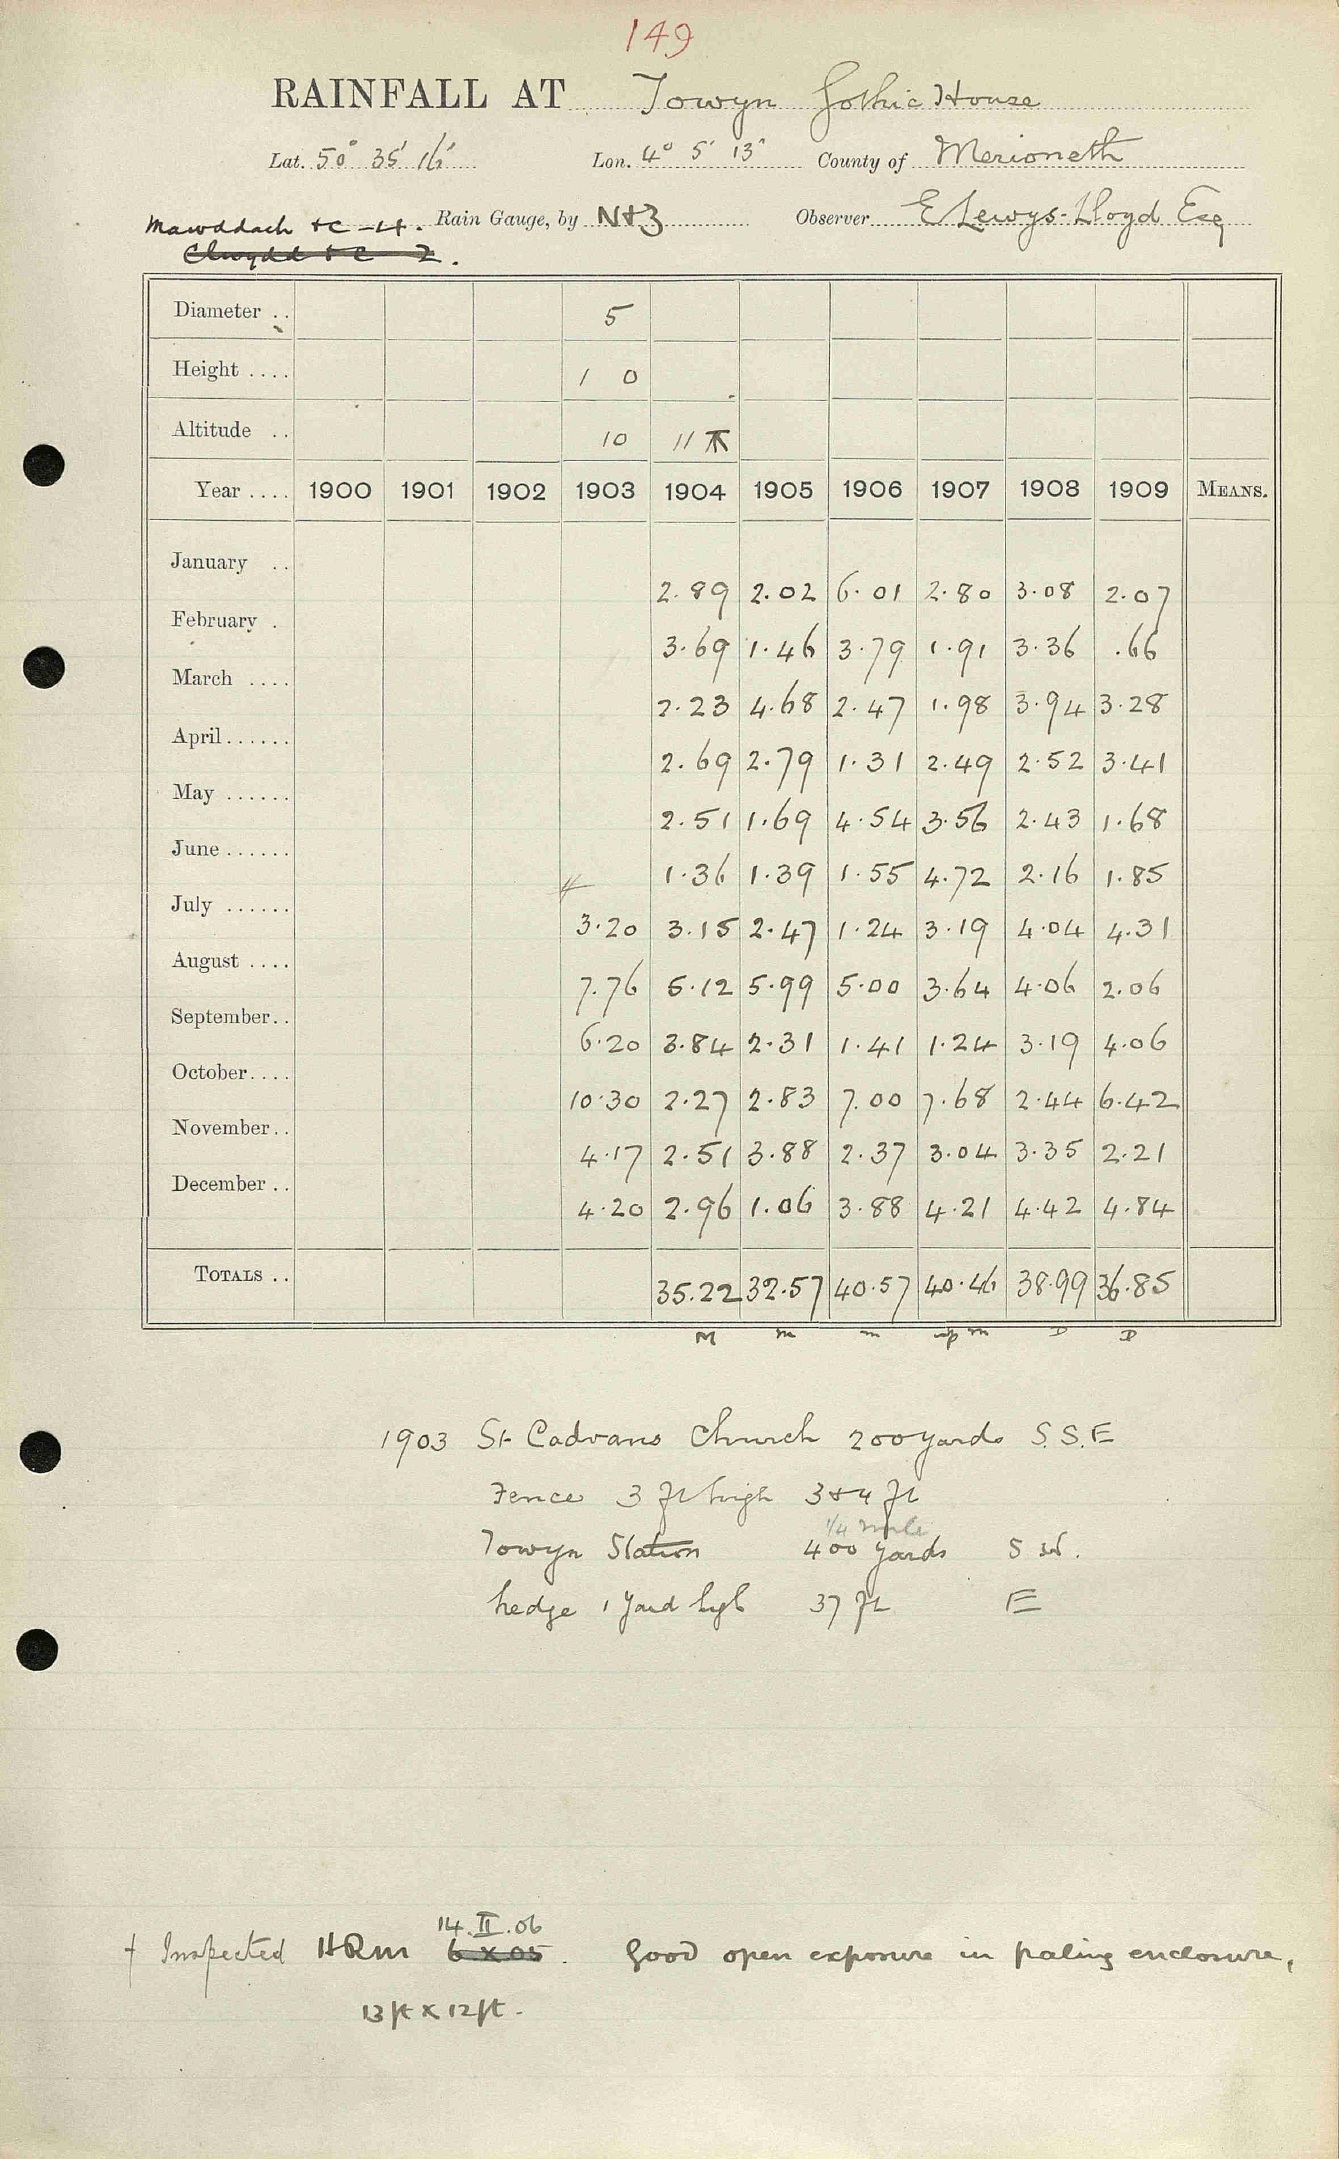 149
RAINFALL AT Towyn Gothic House
Lat. 50° 35' 16" Lon. 4° 5' 13" County of Merioneth
Mawddach &c -14. Rain Gauge, by N&Z Observer E Lewys-Lloyd Esq
Clwydd &c 2.
Diameter .. 5
Height .... 1 0
Altitude .. 10 11
Year .... 1900 1901 1902 1903 1904 1905 1906 1907 1908 1909 MEANS.
January .. 2.89 2.02 6.01 2.80 3.08 2.07
February . 3.69 1.46 3.79 1.91 3.36 .66
March .... 2.23 4.68 2.47 1.98 3.94 3.28
April...... 2.69 2.79 1.31 2.49 2.52 3.41
May ...... 2.51 1.69 4.54 3.56 2.43 1.68
June ...... 1.36 1.39 1.55 4.72 2.16 1.85
July ...... 3.20 3.15 2.47 1.24 3.19 4.04 4.31
August .... 7.76 5.12 5.99 5.00 3.64 4.06 2.06
September.. 6.20 3.84 2.31 1.41 1.24 3.19 4.06
October.... 10.30 2.27 2.83 7.00 7.68 2.44 6.42
November.. 4.17 2.51 3.88 2.37 3.04 3.35 2.21
December .. 4.20 2.96 1.06 3.88 4.21 4.42 4.84
TOTALS .. 35.22 32.57 40.57 40.46 38.99 36.85
M m m m D D
1903 St Cadvans Church 200 yards S.S.E
Fence 3 ft high 3&4 ft
1/4 mile
Towyn Station 400 yards S W.
hedge 1 yard high 37 ft E
14.II.06
† Inspected HRM 6 X 05. Good open exposure in paling enclosure,
13 ft x 12 ft.